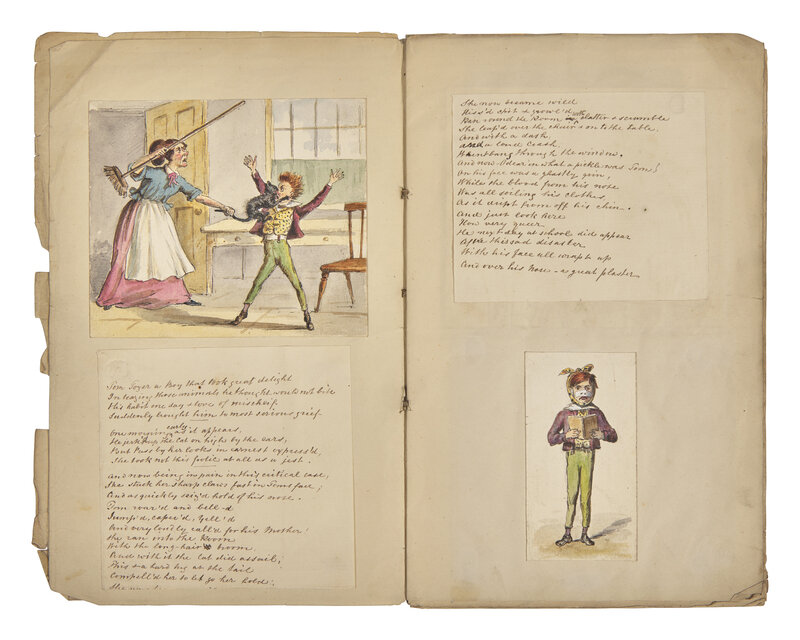 Tom Toyer a Boy that took great delight
In teazing those animals he thought would not bite
His habit one day & love of mischeif
Suddenly brought him to most serious grief
One morning early as it appears,
He jerk'd up the Cat on high by the ears,
But Puss by her looks in earnest express'd,
She took not this frolic at all as a jest.
And now being in pain in this critical case,
She stuck her sharp claws fast in Toms face;
And as quickly seiz'd hold of his nose.
Tom roar'd and bell-d
Jump'd, caper'd, Yell'd
And very loudly call'd for his Mother!
She ran into the Room
With the long-hair broom
And with it the Cat did assail;
This & a hard tug at the tail
Compell'd her to let go her hold;
She now became wild
Hiss'd spit & growl'd
Ran round the Room with clatter & scramble
She leap'd over the chairs & on to the table,
And with a dash
and a loud Crash
Went bang through the window.
And now O dear in what a pickle was Tom!
On his face was a ghastly grin,
While the blood from his nose
Was all soiling his clothes
As it dript from off his chin.
And just look here
How very queer
He next day at school did appear
After this sad disaster
With his face all wrapt up
And over his nose - a great plaster